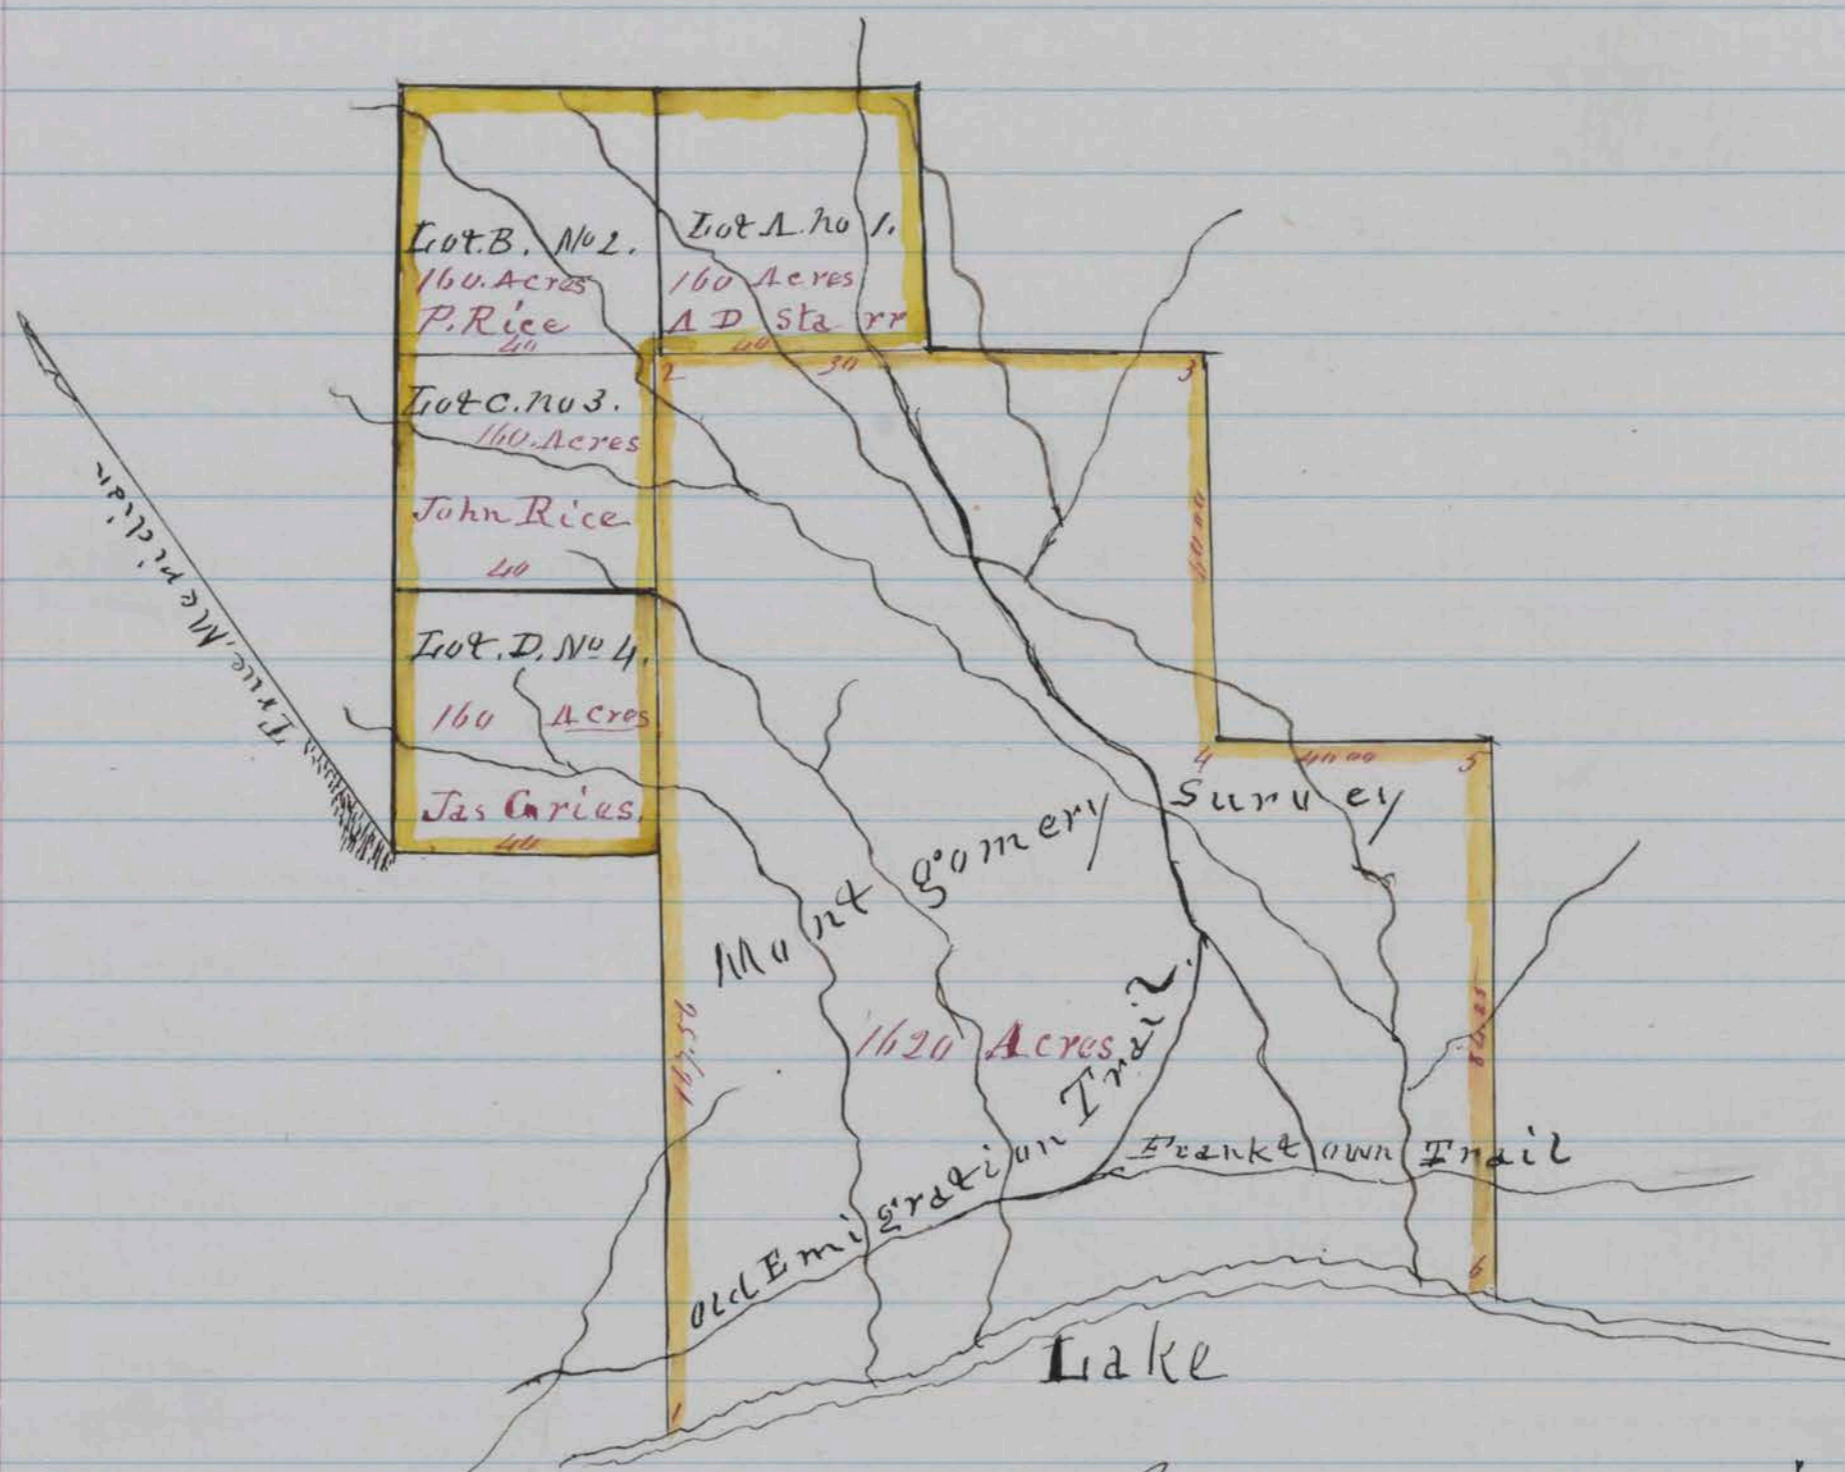 Lot.B. No 2.
160.Acres
P.Rice
40
Lot A. no 1.
160 Acres
A D Starr
40
2
30
3
Lot C. no 3.
160.Acres
John Rice
40
Lot.D. No 4.
160 Acres
Jas Gries.
40
True Meridian
4
4000
5
Montgomery Survey
1620 Acres
Old Emigration Trail.
Franktown Trail
6
1
Lake